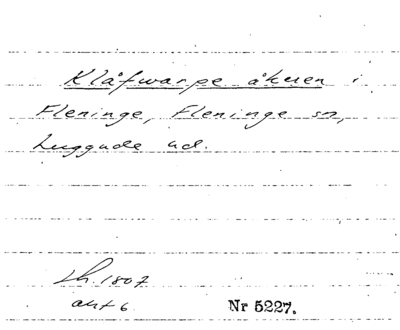 Klåfwarpe åkren i
Fleninge, Fleninge sn,
Luggude hd.
Lh. 1807
akt 6.
Nr 5227.